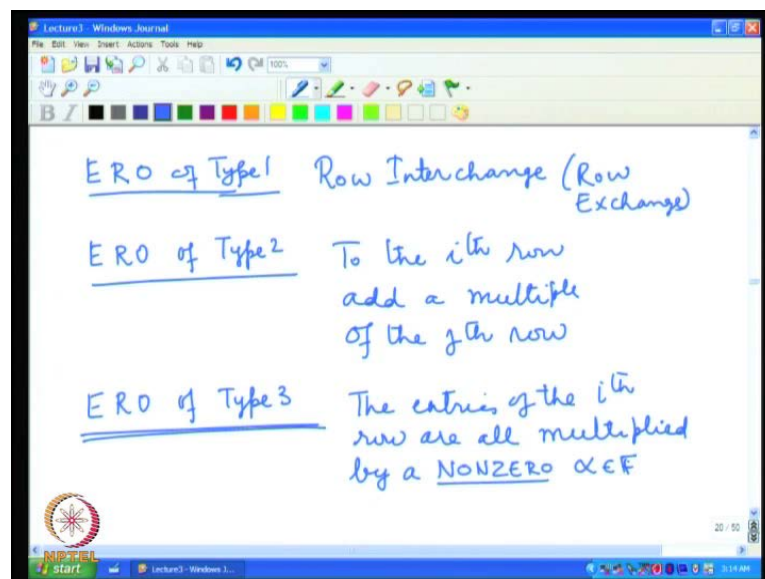 Lecture3 - Windows Journal
File Edit View Insert Actions Tools Help
100%
B I
ERO of Type1 Row Interchange (Row
Exchange)
ERO of Type2 To the ith row
add a multiple
of the jth row
ERO of Type3 The entries of the ith
row are all multiplied
by a NONZERO α ∈ F
20 / 50
NPTEL
start Lecture3 - Windows J... 3:14 AM